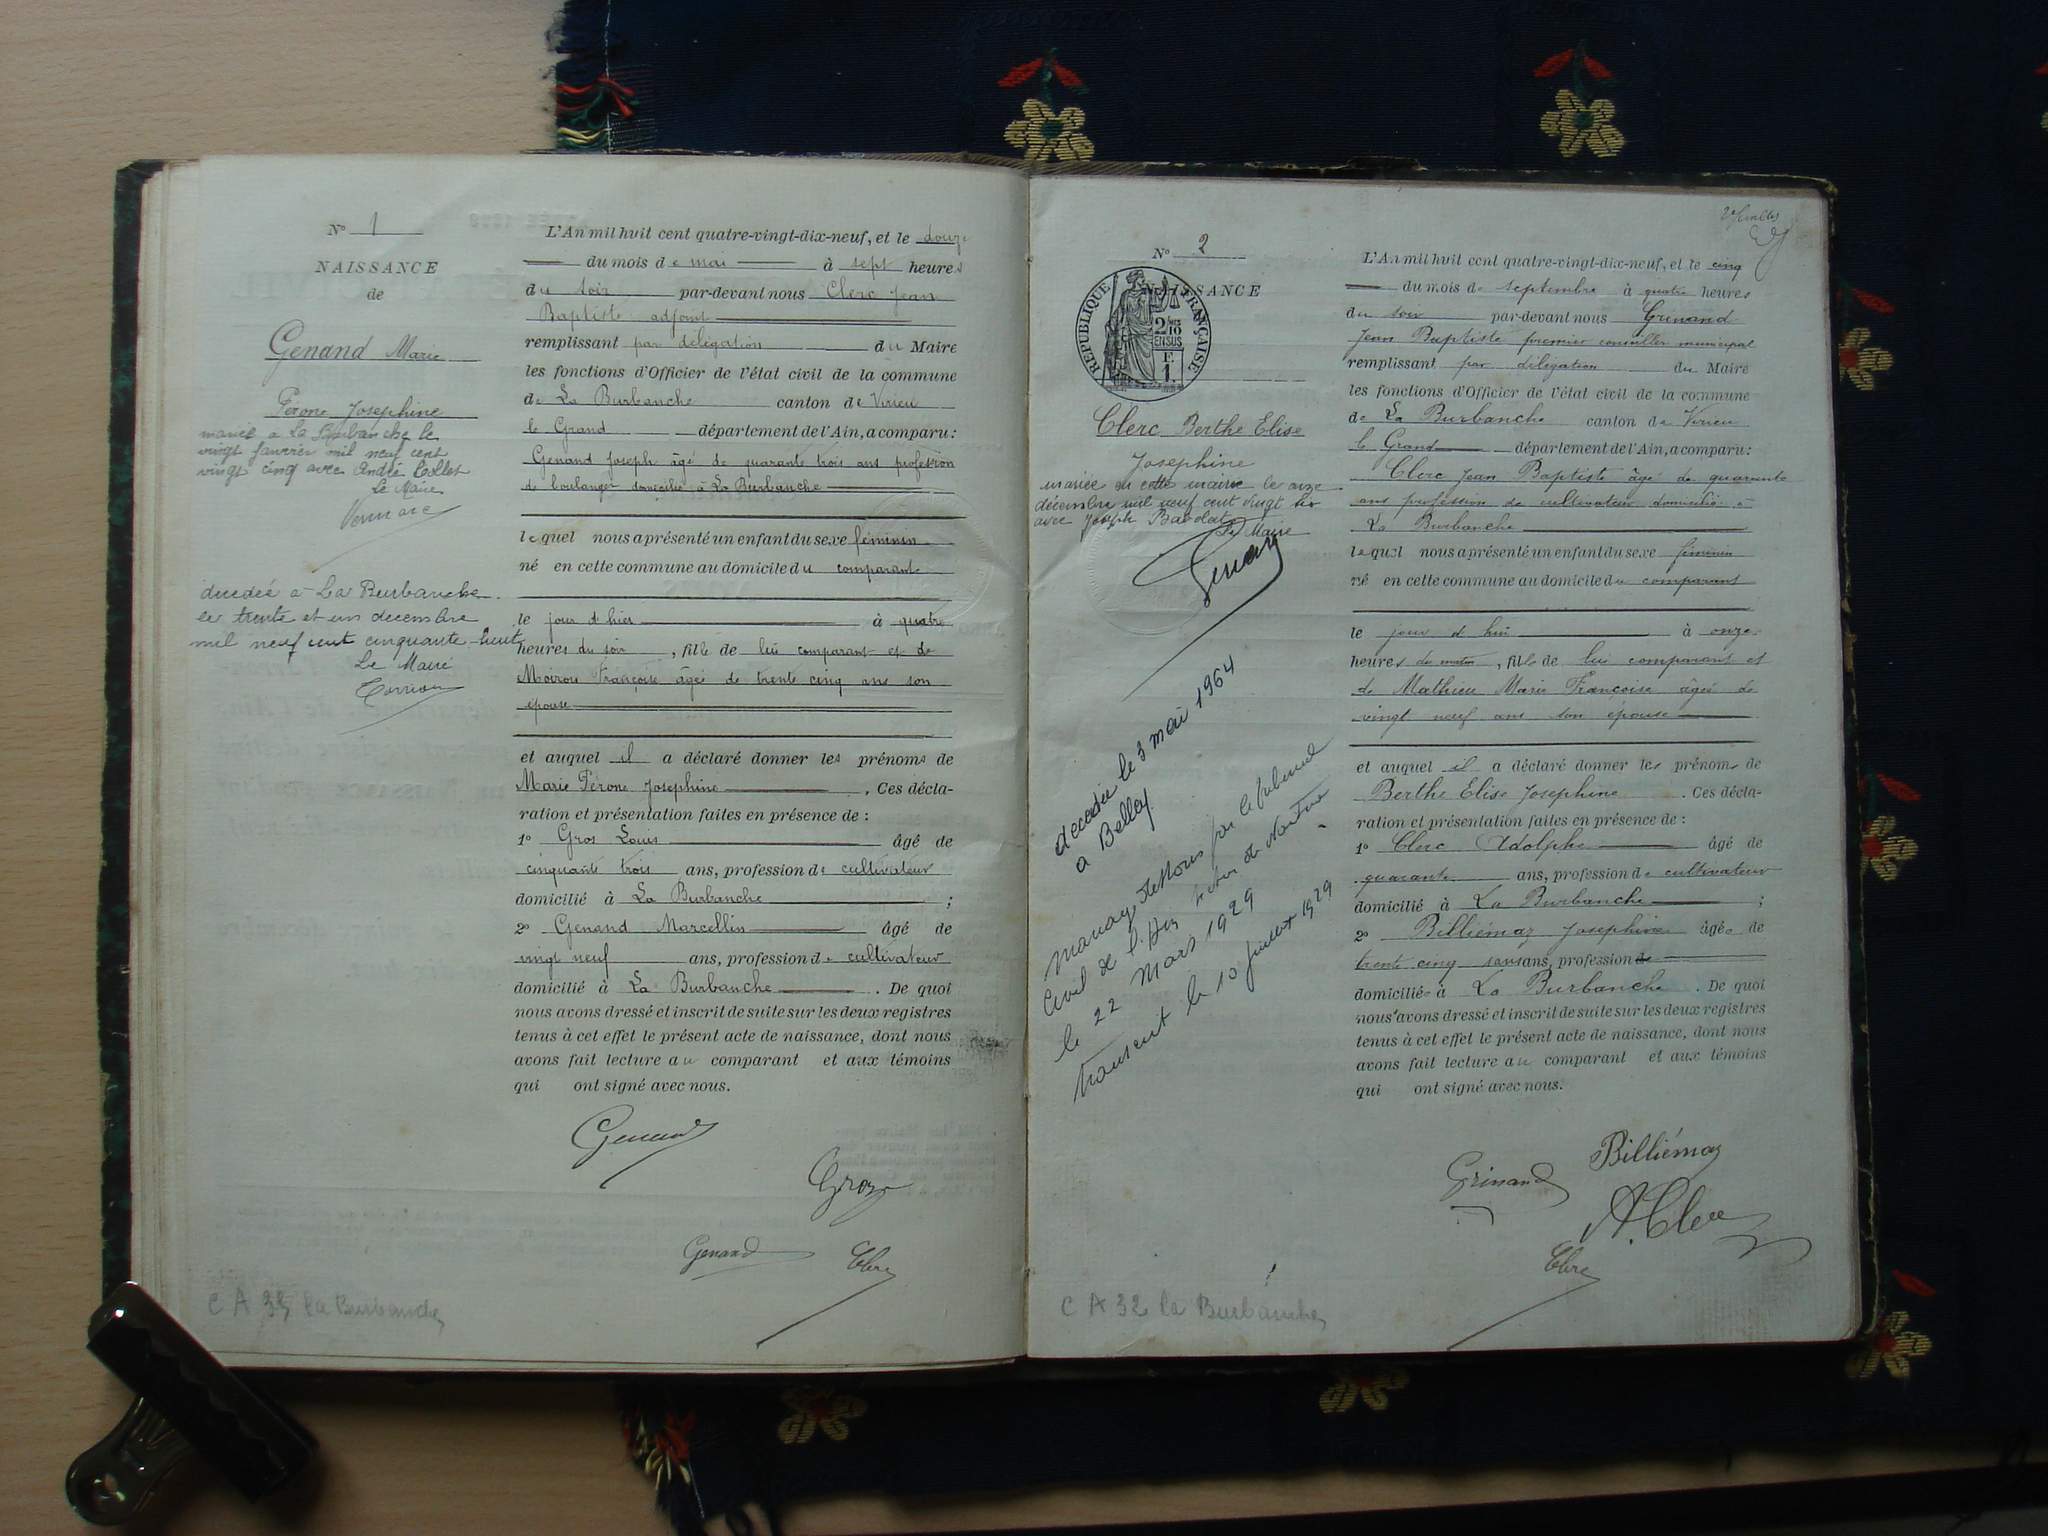 N° 1
NAISSANCE
de
Genand Marie
Pérone Josephine
mariée a La Burbanche le
vingt janvier mil neuf cent
vingt cinq avec André Collet
Le Maire
décédée a La Burbanche
le trente et un decembre
mil neuf cent cinquante-huit
Le Maire
L'An mil huit cent quatre-vingt-dix-neuf, et le douze
du mois de mai à sept heures
du soir par-devant nous Clerc Jean
Baptiste adjoint
remplissant par délégation du Maire
les fonctions d'Officier de l'état civil de la commune
de La Burbanche canton de Virieu
le Grand département de l'Ain, a comparu:
Genand Joseph âgé de quarante trois ans profession
de boulanger domicilié à La Burbanche
lequel nous a présenté un enfant du sexe féminin
né en cette commune au domicile du comparant
le jour d'hier à quatre
heures du soir, fille de lui comparant et de
Moiroux Françoise âgée de trente cinq ans son
épouse
et auquel il a déclaré donner les prénoms de
Marie Pérone Josephine. Ces décla-
ration et présentation faites en présence de:
1° Gros Louis âgé de
cinquante trois ans, profession de cultivateur
domicilié à La Burbanche;
2° Genand Marcellin âgé de
vingt neuf ans, profession de cultivateur
domicilié à La Burbanche. De quoi
nous avons dressé et inscrit de suite sur les deux registres
tenus à cet effet le présent acte de naissance, dont nous
avons fait lecture au comparant et aux témoins
qui ont signé avec nous.
Genand
Gros
Genand Clerc
C A 32 la Burbanche
N° 2
NAISSANCE
RÉPUBLIQUE FRANÇAISE
2/10 EN SUS
F
1.
Clerc Berthe Elise
Josephine
mariée en cette mairie le onze
décembre mil neuf cent vingt
avec Joseph
Le Maire
decedée le 3 mai 1964
a Belley
mariage dissous par le tribunal
civil de de Nantua
le 22 Mars 1929
transcrit le 10 juillet 1929
L'An mil huit cent quatre-vingt-dix-neuf, et le cinq
du mois de septembre à quatre heures
du soir par-devant nous Grinand
Jean Baptiste premier conseiller municipal
remplissant par délégation du Maire
les fonctions d'Officier de l'état civil de la commune
de La Burbanche canton de Virieu
le Grand département de l'Ain, a comparu:
Clerc Jean Baptiste âgé de quarante
ans profession de cultivateur domicilié à
La Burbanche
lequel nous a présenté un enfant du sexe féminin
né en cette commune au domicile du comparant
le jour d'hui à onze
heures du matin, fille de lui comparant et
de Mathieu Marie Françoise âgée de
vingt neuf ans son épouse
et auquel il a déclaré donner les prénoms de
Berthe Elise Josephine. Ces décla-
ration et présentation faites en présence de:
1° Clerc Adolphe âgé de
quarante ans, profession de cultivateur
domicilié à La Burbanche;
2° Billiémaz Josephine âgée de
trente cinq ans, sans profession de
domiciliée à La Burbanche. De quoi
nous avons dressé et inscrit de suite sur les deux registres
tenus à cet effet le présent acte de naissance, dont nous
avons fait lecture au comparant et aux témoins
qui ont signé avec nous.
Billiémaz
Grinand
A. Clerc
Clerc
C A 32 la Burbanche